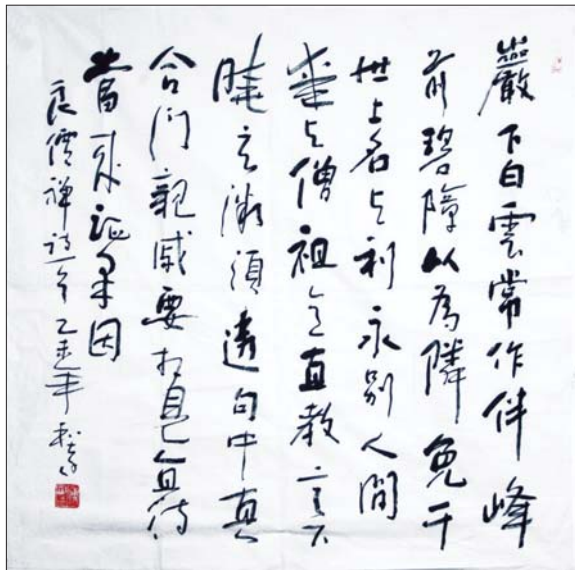 巖下白雲常作伴峰
前碧障以為隣免干
世上名与利永別人間
愛与僧祖意直教言下
曉玄微須透句中真
合門親戚要相見直待
當來證果因
良價禪詩一首乙未年